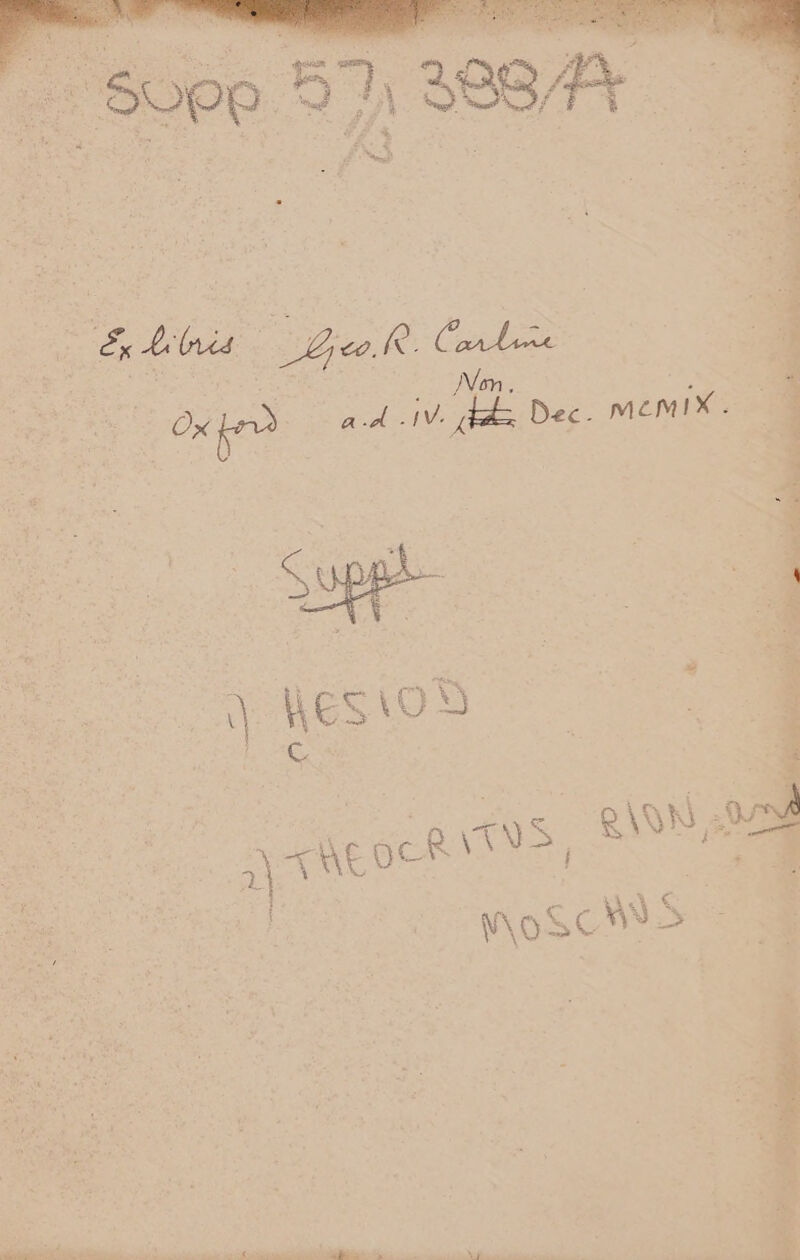 Supp 57, 388/A
B
Ex libris Geo. R. Carline
Non.
Oxford a.d. IV. Dec. MCMIX.
Suppl
1) HESIOD
C
2) THEOCRITUS, BION, and
MOSCHUS